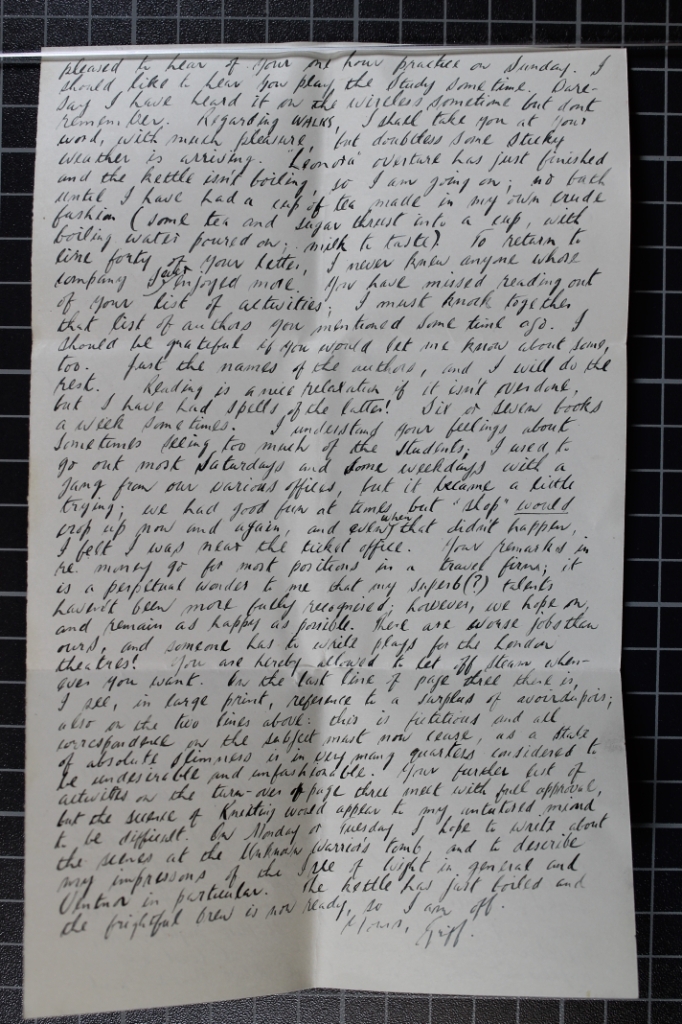 pleased to hear of your one hour practice on Sunday. I
should like to hear you play the Study sometime. Dare-
say I have heard it on the wireless sometime but dont
remember. Regarding WALKS, I shall take you at your
word, with much pleasure, but doubtless some sticky
weather is arriving. "Leonora" overture has just finished
and the kettle isn't boiling, so I am going on; no bath
until I have had a cup of tea made in my own crude
fashion (some tea and sugar thrust into a cup, with
boiling water poured on; milk to taste). To return to
line forty of your letter, I never knew anyone whose
company I ever enjoyed more. You have missed reading out
of your list of activities; I must knock together
that list of authors you mentioned some time ago. I
should be grateful if you would let me know about some,
too. Just the names of the authors, and I will do the
rest. Reading is a nice relaxation if it isn't overdone,
but I have had spells of the latter! Six or seven books
a week sometimes. I understand your feelings about
sometimes seeing too much of the students; I used to
go out most Saturdays and some weekdays with a
gang from our various offices, but it became a little
trying; we had good fun at times but "shop" would
crop up now and again, and even when that didn't happen,
I felt I was near the ticket office. Your remarks in
re. money go for most positions in a travel firm; it
is a perpetual wonder to me that my superb(?) talents
haven't been more fully recognised; however, we hope on,
and remain as happy as possible. There are worse jobs than
ours, and someone has to write plays for the London
theatres! You are hereby allowed to let off steam, when-
ever you want. On the last line of page three there is,
I see, in large print, reference to a surplus of avoirdupois;
also on the two lines above: this is fictitious and all
correspondence on the subject must now cease, as a state
of absolute slimness is in very many quarters considered to
be undesirable and unfashionable. Your further list of
activities on the turn-over of page three meet with full approval,
but the science of Knitting would appear to my untutored mind
to be difficult. On Monday or Tuesday I hope to write about
the scenes at the Unknown Warrior's Tomb, and to describe
my impressions of the Isle of Wight in general and
Ventnor in particular. The kettle has just boiled and
the frightful brew is now ready, so I am off.
Yours,
Griff.